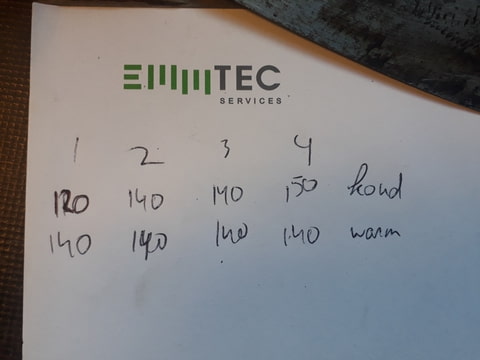 EMMTEC
SERVICES
1 2 3 4
120 140 140 150 koud
140 140 140 140 warm